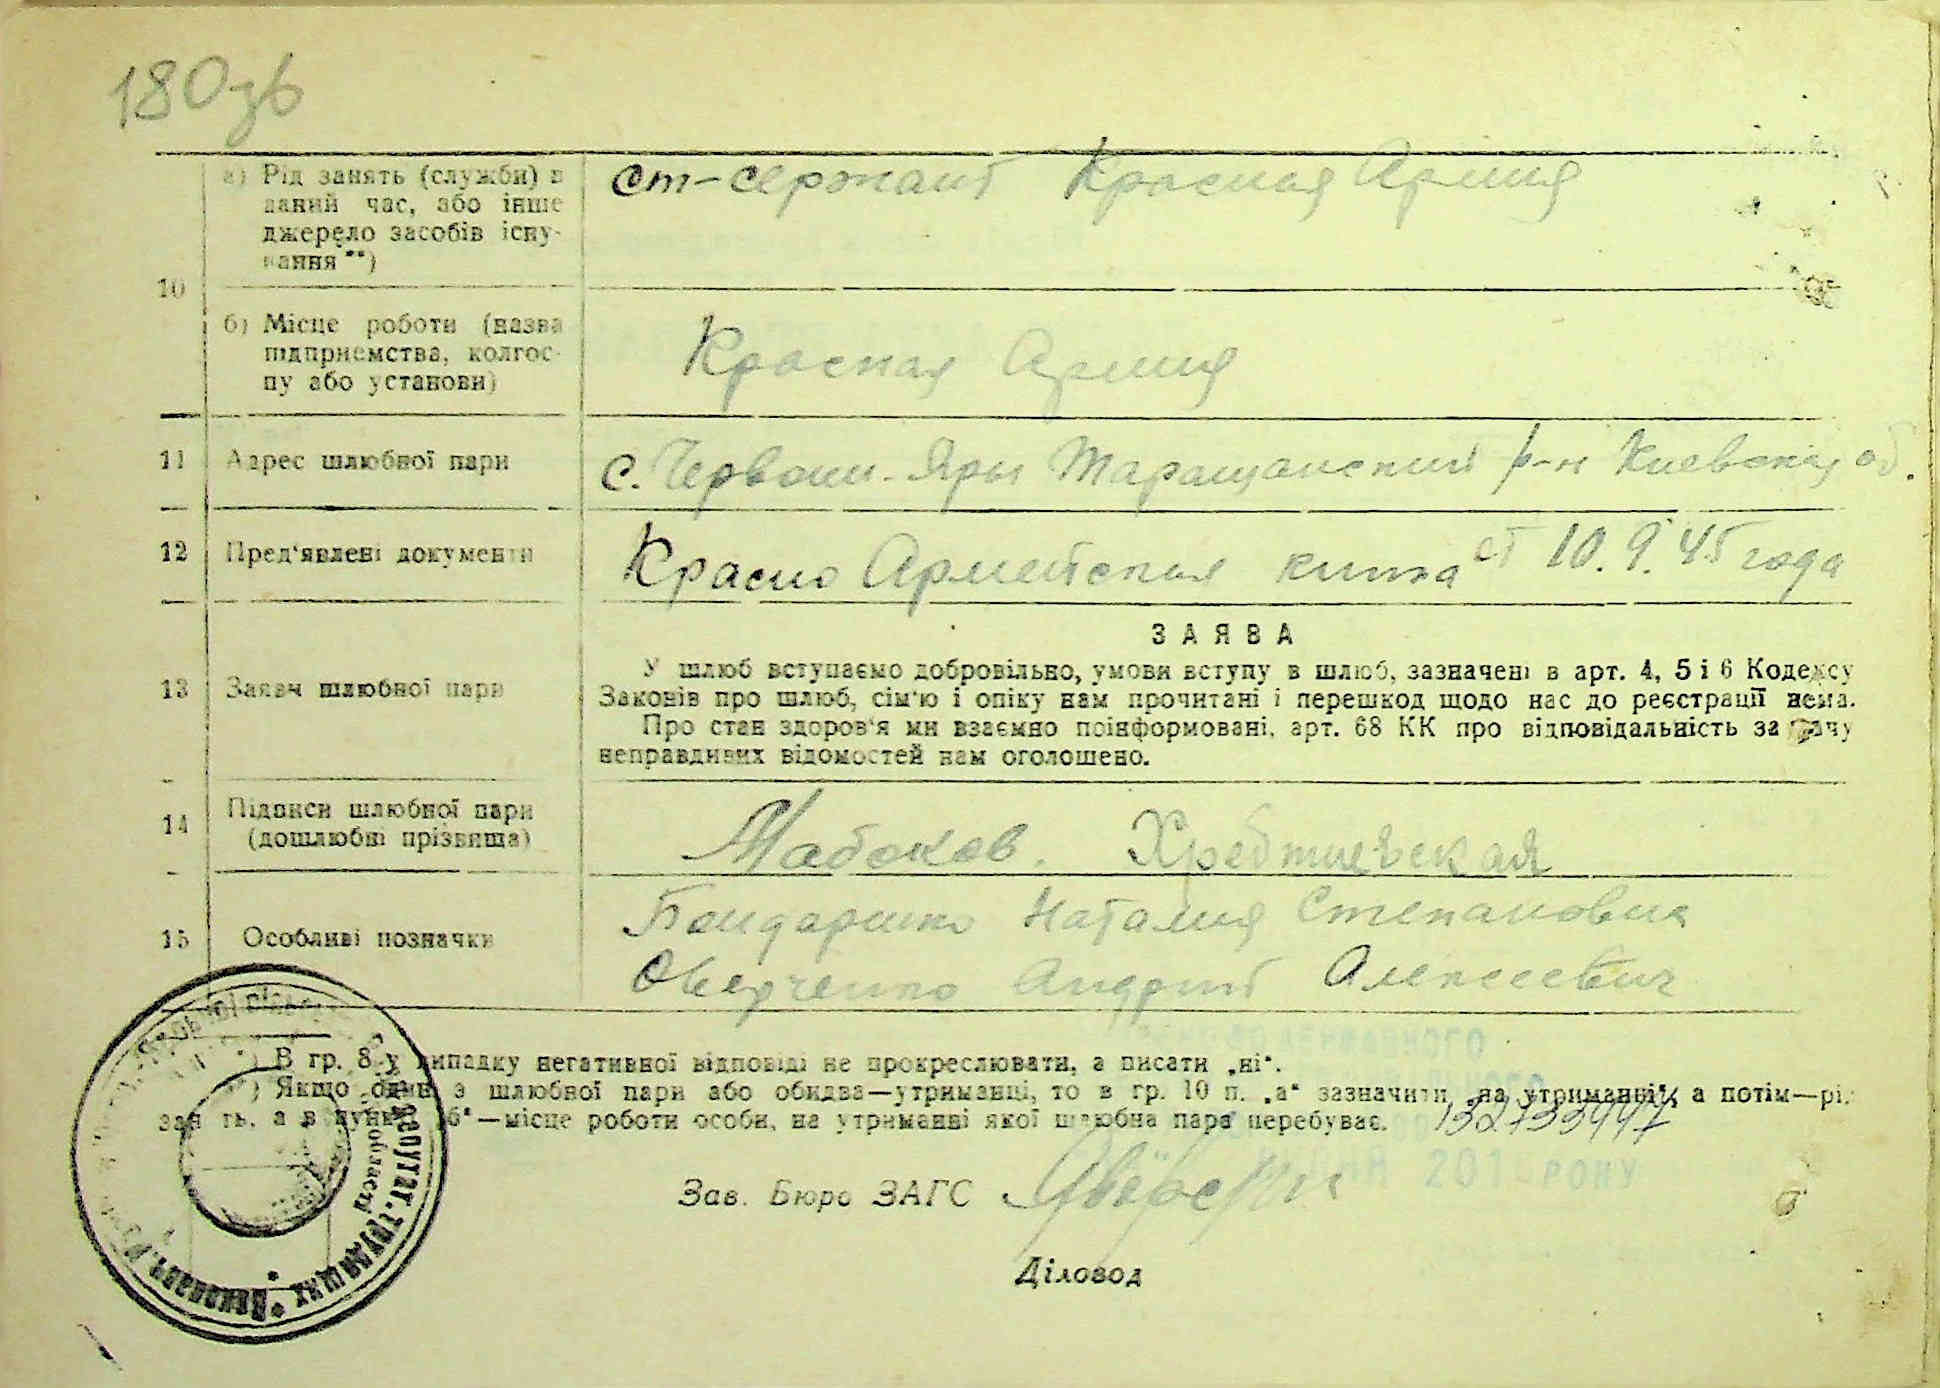 180зв
а) Рід занять (служби) в
даний час, або інше
джерело засобів існу-
вання **)
ст-сержант Красная Армия
10
б) Місце роботи (назва
підприємства, колгос-
пу або установи)
Красная Армия
11 Адрес шлюбної пари
с. Червони-Яры Таращанский р-н Киевская об.
12 Пред'явлені документи
Красно Армейская книжка от 10.9.45 года
ЗАЯВА
13 Заява шлюбної пари
У шлюб вступаємо добровільно, умови вступу в шлюб, зазначені в арт. 4, 5 і 6 Кодексу
Законів про шлюб, сім'ю і опіку нам прочитані і перешкод щодо нас до реєстрації нема.
Про стан здоров'я ми взаємно поінформовані, арт. 68 КК про відповідальність за дачу
неправдивих відомостей нам оголошено.
14 Підписи шлюбної пари
(дошлюбні прізвища)
Мабоков. Хребтиевская
15 Особливі позначки
Бондаренко Наталия Степановна
Андрий Алексеевич
*) В гр. 8 у випадку негативної відповіді не прокреслювати, а писати „ні“.
**) Якщо один з шлюбної пари або обидва—утриманці, то в гр. 10 п. „а“ зазначити „на утриманні“, а потім—рід
занять, а в пункті „б“—місце роботи особи, на утриманні якої шлюбна пара перебуває.
Зав. Бюро ЗАГС
Діловод
депутат. трудящих * Виконавч.
області
ДЕРЖАВНОГО
201 РОКУ